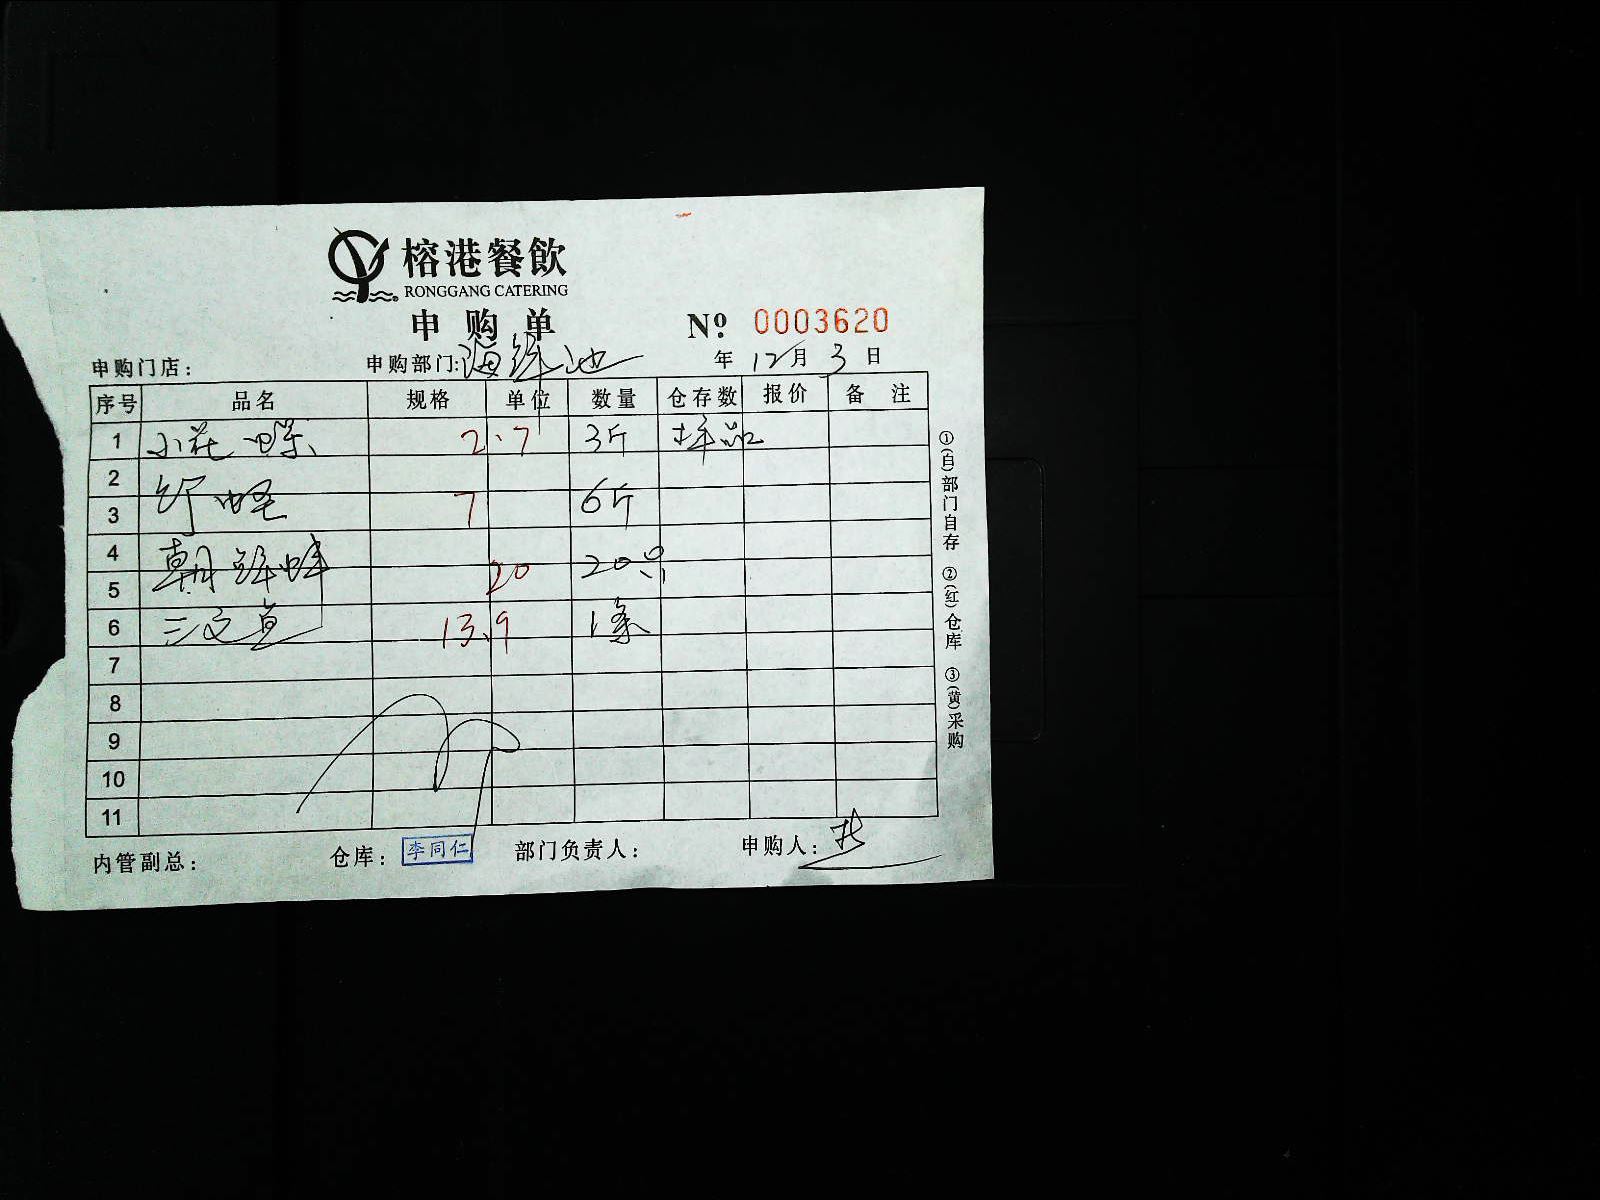 榕港餐飲
RONGGANG CATERING
申购单
№ 0003620
申购门店： 申购部门:海鲜池 年 12月 3 日
序号 品名 规格 单位 数量 仓存数 报价 备 注
1 小花螺 2.7 3斤 样品
2
3 竹蛏 7 6斤
4
5 朝鲜蚌 20 20只
6 三文鱼 13.9 1条
7
8
9
10
11
内管副总： 仓库： 李同仁 部门负责人： 申购人：
①(白)部门自存 ②(红)仓库 ③(黄)采购